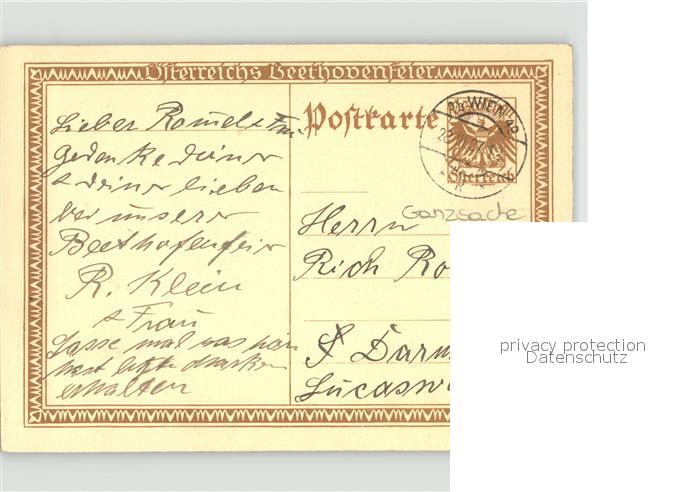 Österreichs Beethovenfeier
Postkarte
WIEN 49
Österreich
Ganzsache
Lieber
Gedenke deiner
& deiner lieben
bei unserer
Beethofenfeier
R. Klein
& Frau
Lasse mal was
erhalten
Herrn
Rich Ro
Darm
Lucasw
privacy protection
Datenschutz